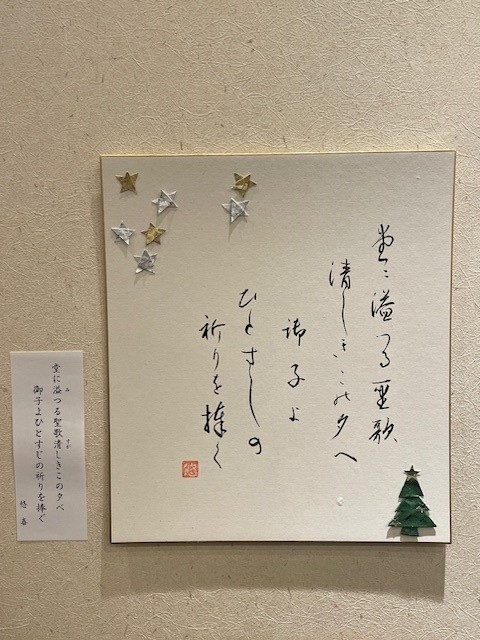 堂に溢つる聖歌
清しきこの夕べ
御子よ
ひとすじの
祈りを捧ぐ
堂に溢つる聖歌清しきこの夕べ
御子よひとすじの祈りを捧ぐ
悠喜